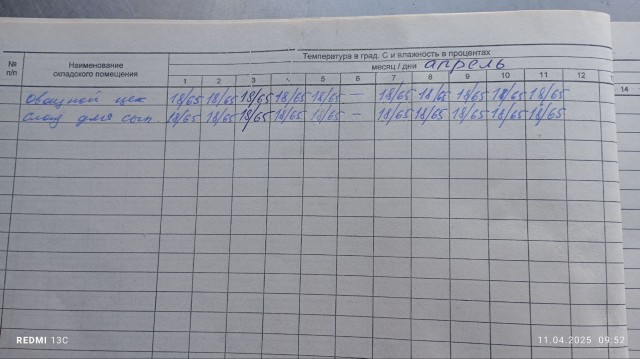 Температура в град. С и влажность в процентах
№ п/п Наименование складского помещения месяц / дни апрель
1 2 3 4 5 6 7 8 9 10 11 12 14
Овощной цех 18/65 18/65 18/65 18/65 18/65 — 18/65 18/65 18/65 18/65 18/65
Склад для сып. 18/65 18/65 18/65 18/65 18/65 — 18/65 18/65 18/65 18/65 18/65
REDMI 13C 11.04.2025 09:52